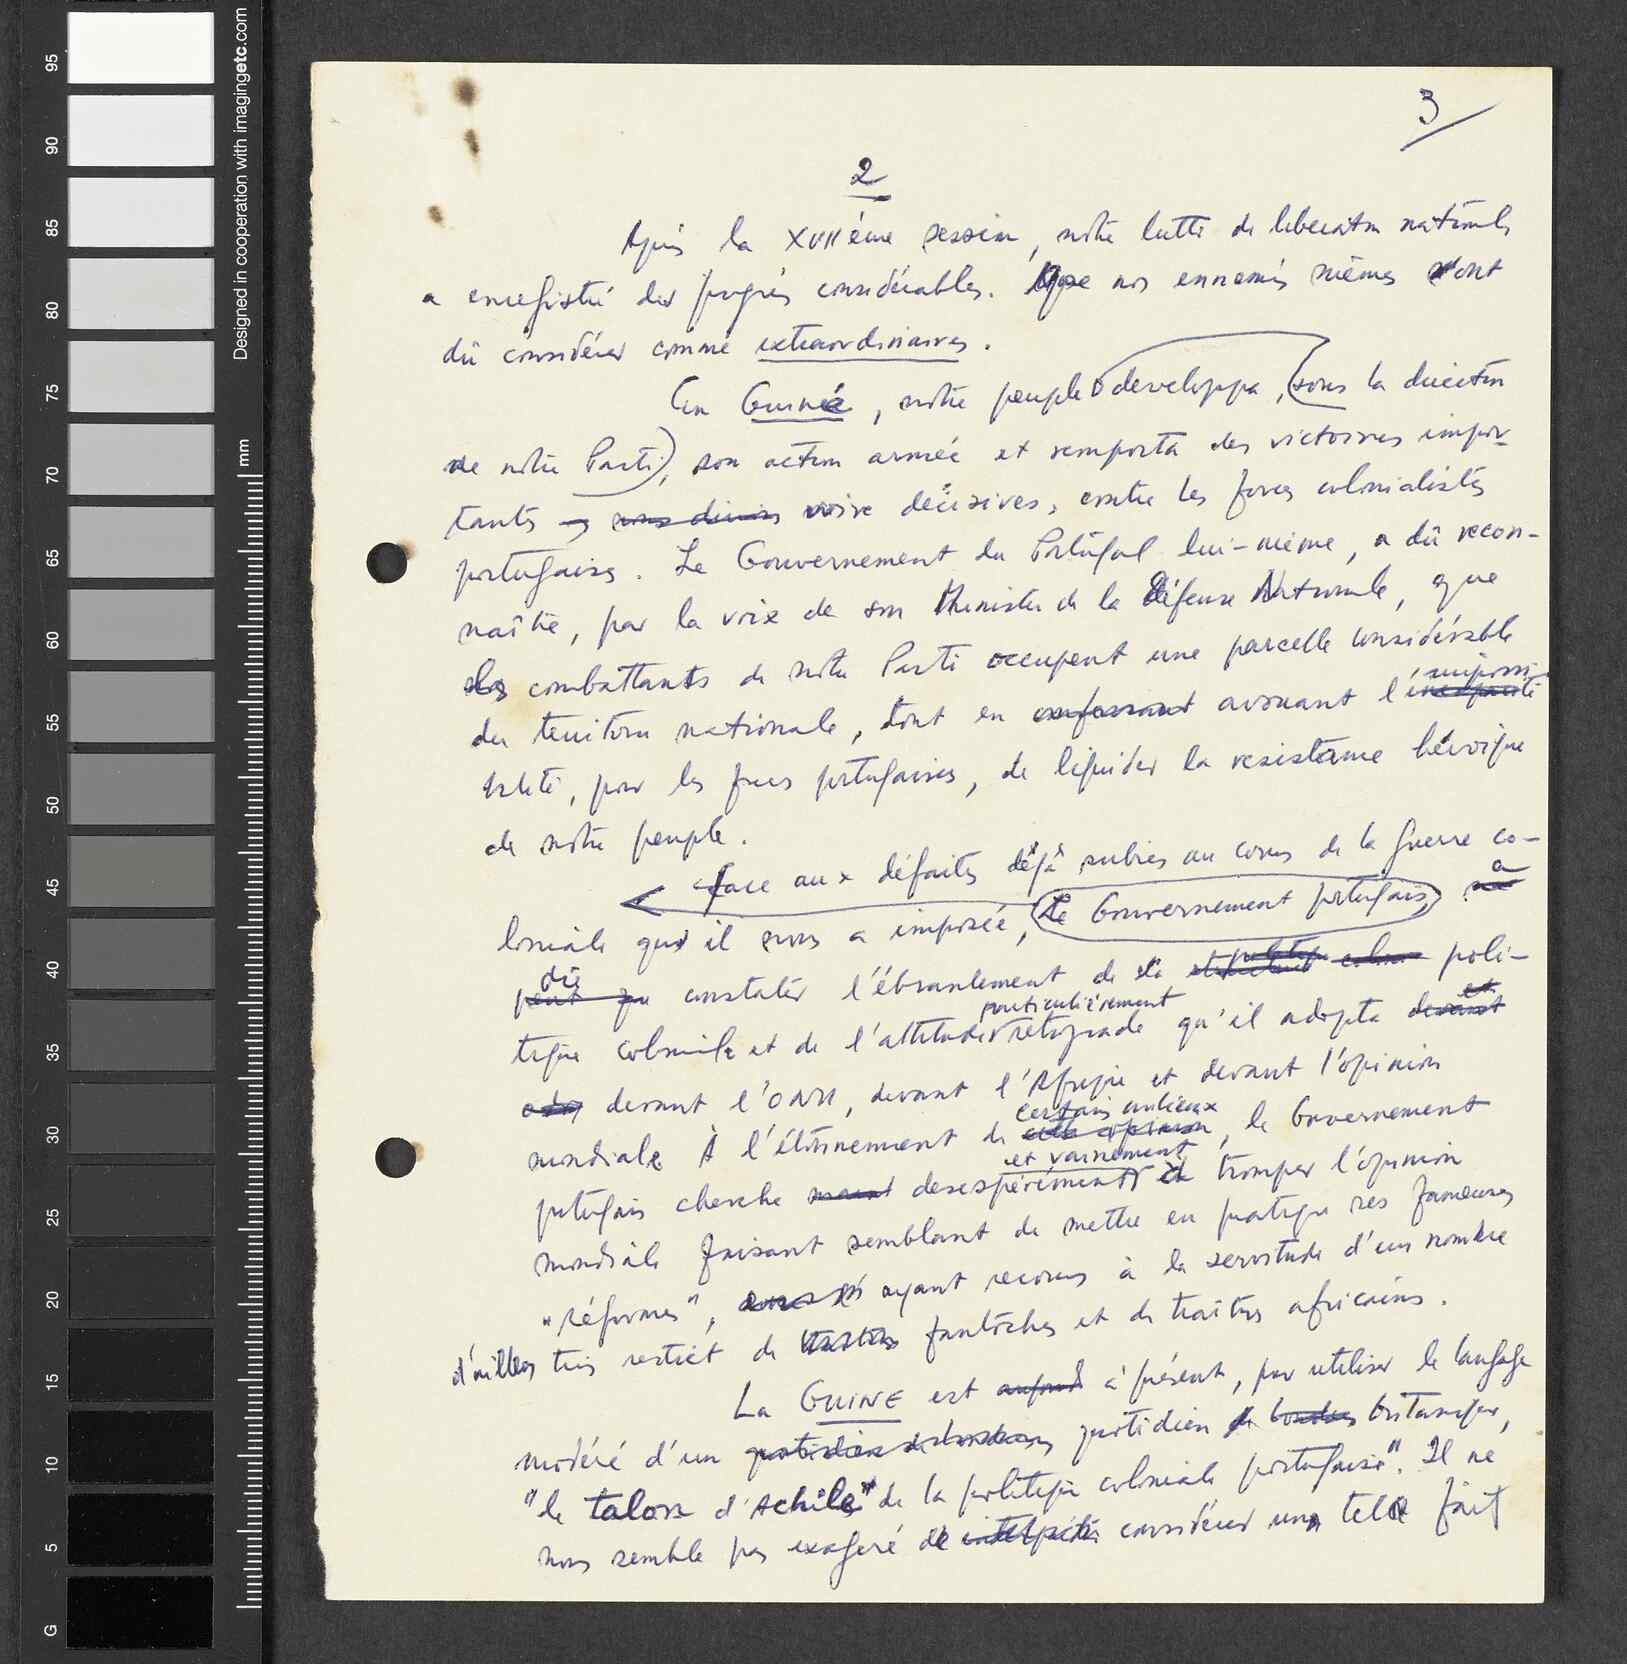 3
2
Après la XVIIème session, notre lutte de liberation nationale
a enregistré des progrès considérables. Que nos ennemis mêmes ont
dû considérer comme extraordinaires.
En Guinée, notre peuple developpa, (sous la direction
de notre Parti), son action armée et remporta des victoires impor-
tants voire décisives, contre les forces colonialistes
portugaises. Le Gouvernement du Portugal lui-même, a dû recon-
naître, par la voix de son Ministre de la Défense Nationale, que
les combattants de notre Parti occupent une parcelle considérable
du territoire nationale, tout en confessant avouant l'impossi-
bilité, par les forces portugaises, de liquider la resistance héroïque
de notre peuple.
Face aux défaites déjà subies au cours de la guerre co-
loniale qu'il nous a imposée, Le Gouvernement portugais a
dû constater l'ébranlement de sa poli-
tique coloniale et de l'attitude particulièrement retograde qu'il adopta devant
devant l'ONU, devant l'Afrique et devant l'opinion
mondiale. À l'étonnement de certains milieux, le Gouvernement
portugais cherche desespérément et vainement à tromper l'opinion
mondiale faisant semblant de mettre en pratique ses fameuses
"réformes", ayant recours à la servitude d'un nombre
d'ailleurs très restrict de fantoches et de traîtres africains.
La GUINE est à présent, pour utiliser le langage
modéré d'un quotidien britanique,
"le talon d'Achile" de la politique coloniale portugaise". Il ne
nous semble pas exageré de considérer un tel fait
Designed in cooperation with imagingetc.com
mm
95
90
85
80
75
70
65
60
55
50
45
40
35
30
25
20
15
10
5
G